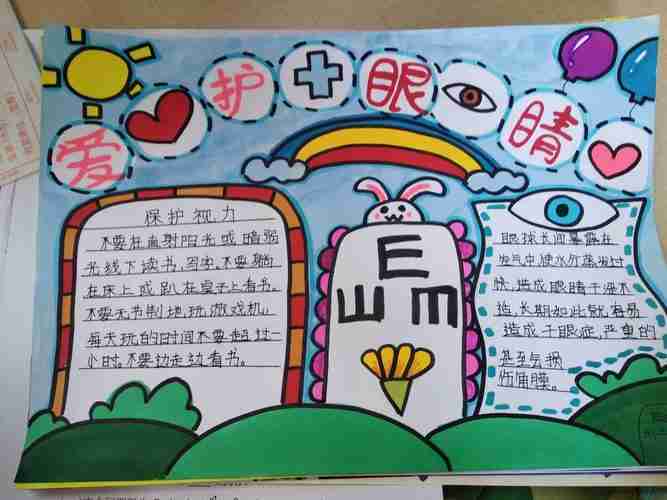 爱护眼睛
保护视力
不要在直射阳光或暗弱
光线下读书,写字。不要躺
在床上或趴在桌子上看书。
不要无节制地玩游戏机,
每天玩的时间不要超过一
小时。不要边走边看书。
E
E
E
眼球长间暴露在
空气中,使水分蒸发过
快,造成眼睛干涩不
适,长期如此就容易
造成干眼症,严重的
甚至会损
伤角膜。